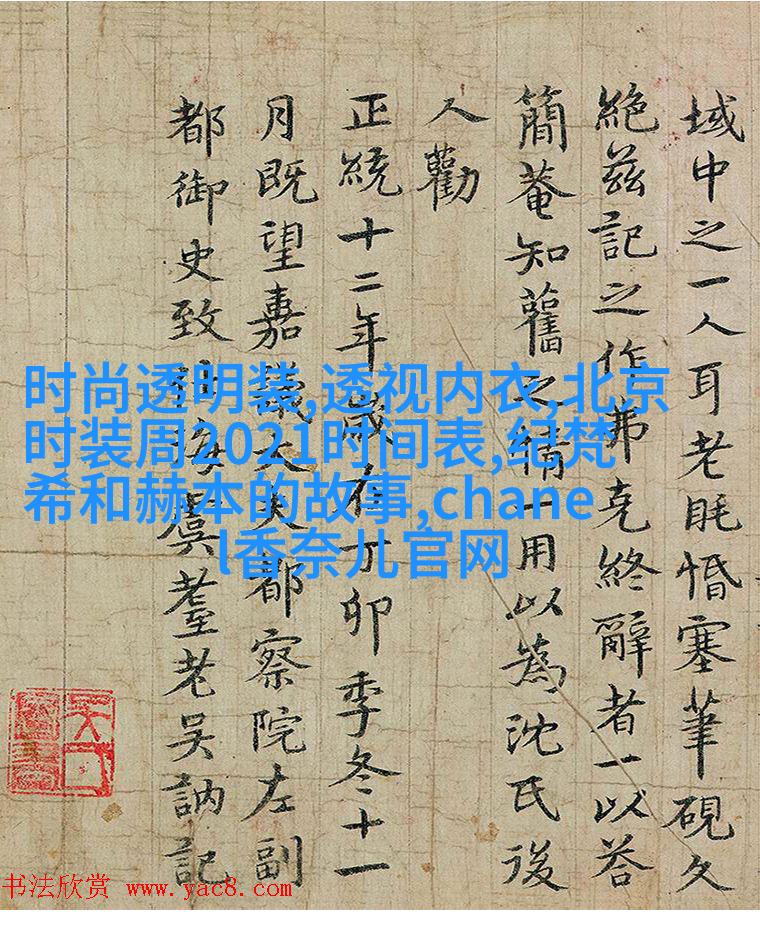 域中之一人耳老眊惛塞筆硯久
絶茲記之作弗克終辭者一以荅
簡菴知舊之情一用以為沈氏後
人勸
正統十二年歲在丁卯季冬十一
月既望嘉議大夫都察院左副
都御史致仕海虞耋老吳訥記
时尚透明装,透视内衣,北京
时装周2021时间表,纪梵
希和赫本的故事,chane
l香奈儿官网
书法欣赏 www.yac8.com